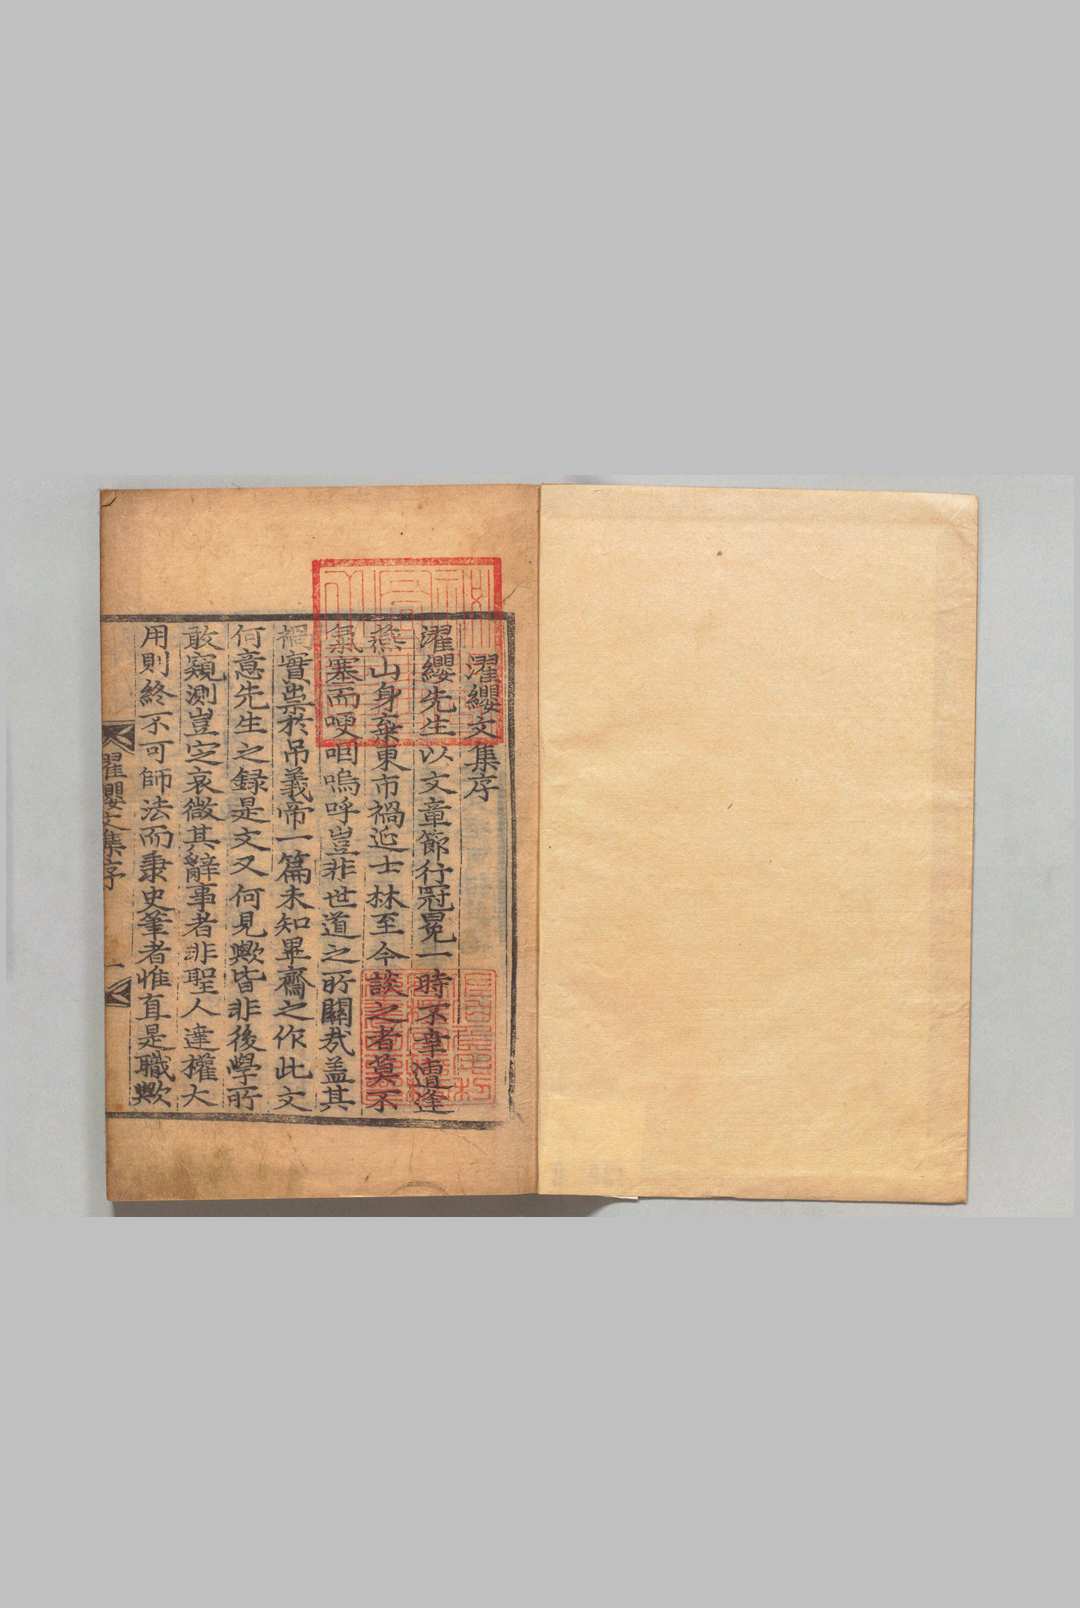 濯纓文集序
濯纓先生以文章節行冠冕一時不幸遭逢
燕山身棄東市禍延士林至今談之者莫不
氣塞而哽咽嗚呼豈非世道之所關㦲盖其
禍實祟於吊義帝一篇未知畢齋之作此文
何意先生之録是文又何見歟皆非後學所
敢窺測豈㝎哀微其辭事者非聖人達權大
用則終不可師法而秉史筆者惟直是職歟
濯纓文集序 一